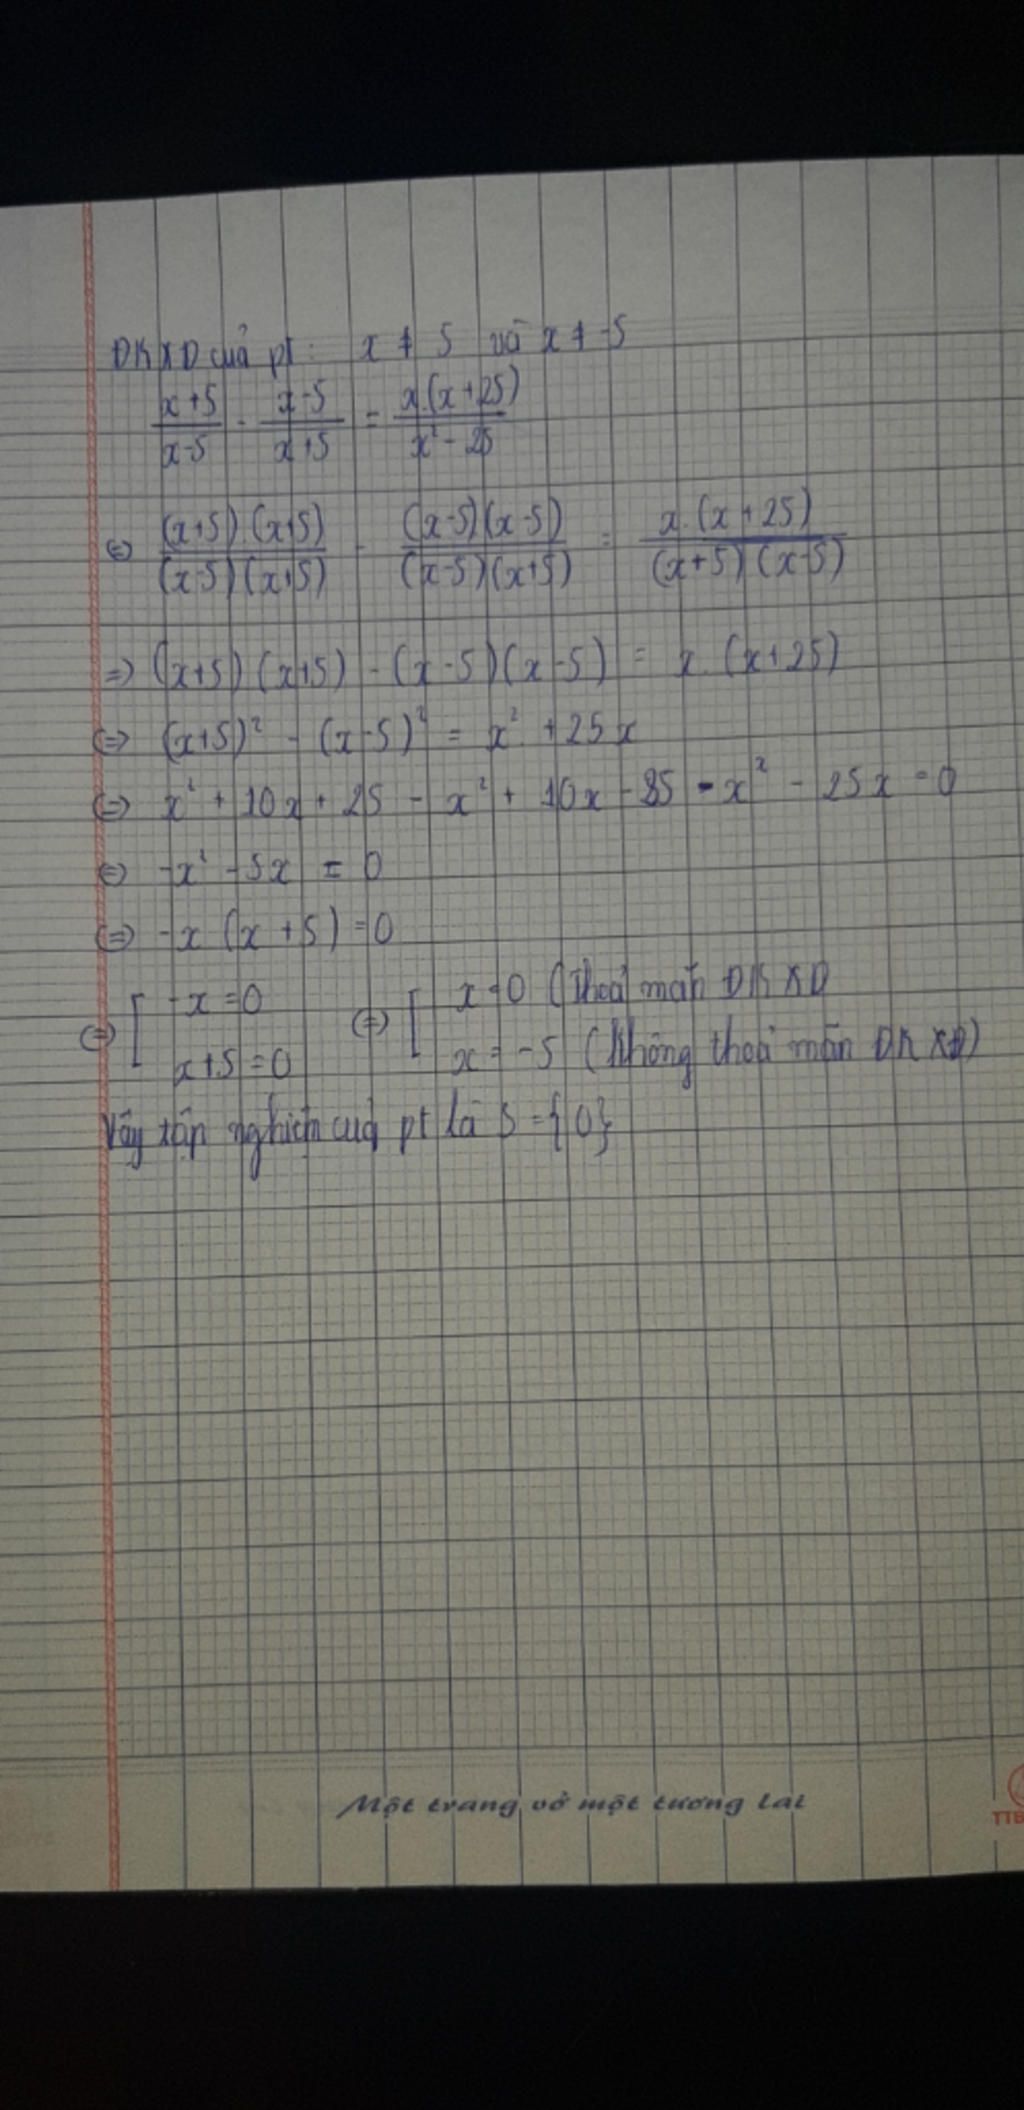 ĐKXD của pt: x ≠ 5 và x ≠ -5
\frac{x+5}{x-5} - \frac{x-5}{x+5} = \frac{x.(x+25)}{x² - 25}
⇔ \frac{(x+5).(x+5)}{(x-5)(x+5)} - \frac{(x-5)(x-5)}{(x-5)(x+5)} = \frac{x.(x+25)}{(x+5)(x-5)}
⇒ (x+5)(x+5) - (x-5)(x-5) = x.(x+25)
⇔ (x+5)² - (x-5)² = x² + 25x
⇔ x² + 10x + 25 - x² + 10x - 25 - x² - 25x = 0
⇔ -x² - 5x = 0
⇔ -x (x+5) = 0
⇔ [ -x = 0 ⇔ [ x = 0 (Thoả mãn ĐKXD
x+5 = 0 x = -5 (Không thoả mãn ĐKXĐ)
Vậy tập nghiệm của pt là S = {0}
Một trang vở một tương lai
TTB